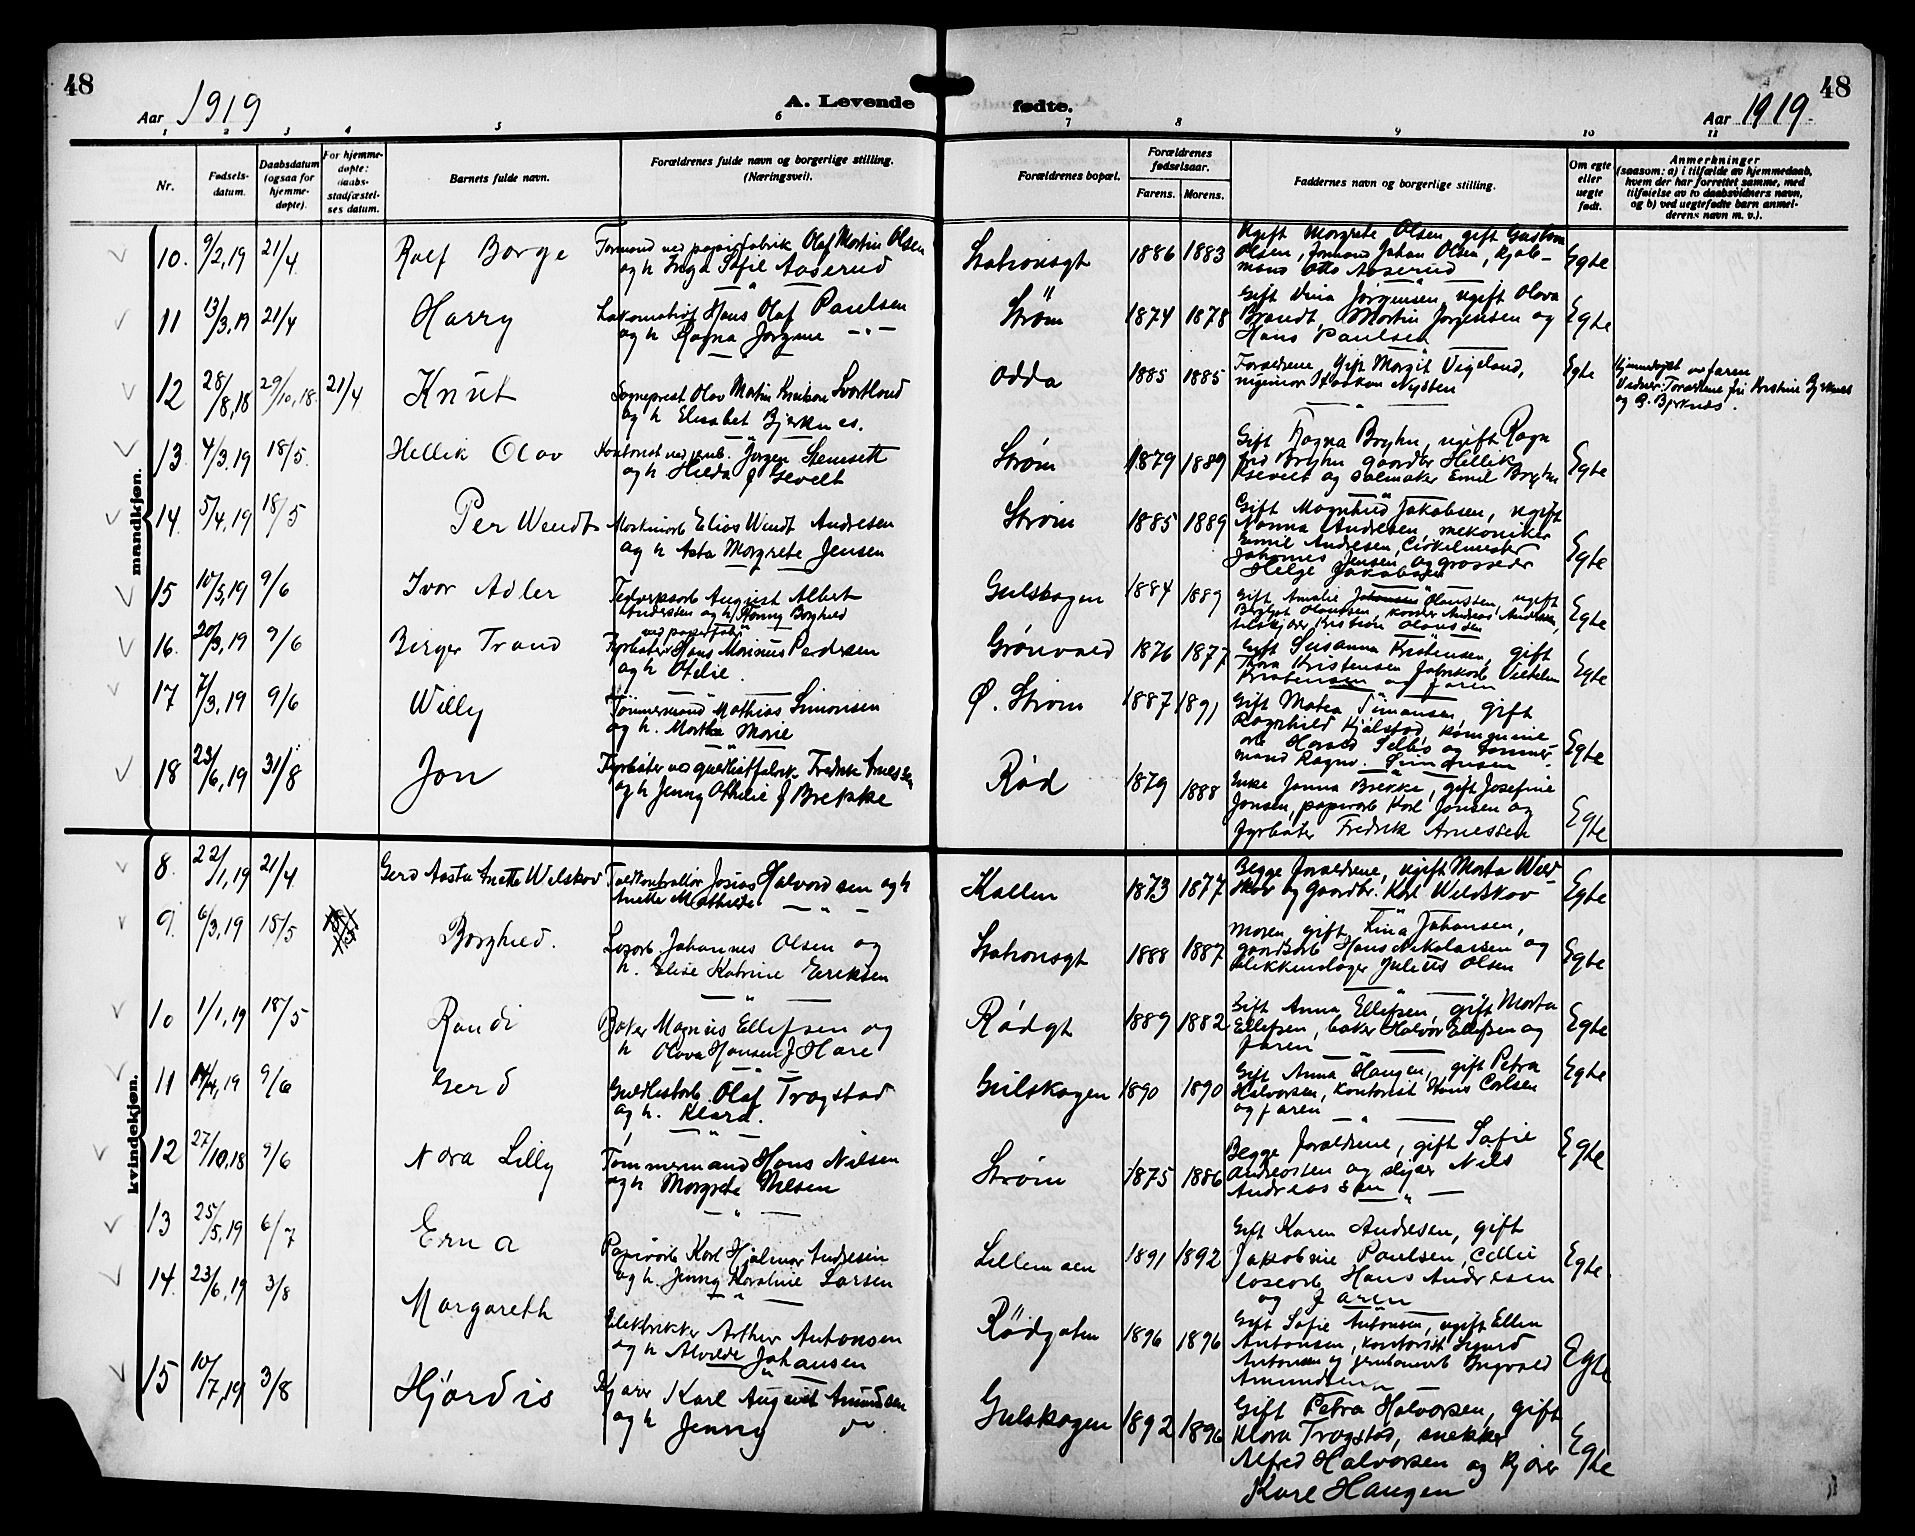 48
Aar 1919
A. Levende
fødte.
Aar 1919.
48
1 2 3 4 5 6 7 8 9 10 11
Nr.
Fødsels-
datum.
Daabsdatum
(ogsaa for
hjemme-
døpte).
For hjemme-
døpte:
daabs-
stadfæstel-
ses datum.
Barnets fulde navn.
Forældrenes fulde navn og borgerlige stilling.
(Næringsvei).
Forældrenes bopæl.
Forældrenes
fødselsaar.
Farens. Morens.
Faddernes navn og borgerlige stilling.
Om egte
eller
uegte
født.
Anmerkninger
(saasom: a) i tilfælde av hjemmedaab,
hvem der har forrettet samme, med
tilføielse av to daabsvidners navn,
og b) ved uegtefødte barn anmel-
derens navn m. v.).
mandkjøn.
10. 9/2,19 21/4 Rolf Borge
Formand ved papirfabrik Olaf Martin Olsen
og h Inga Sofie Aaserud
Stationsgt 1886 1883
Ugift Margrete Olsen, gift
Olsen, formand Johan Olsen,
Otto Aaserud
Egte
11 13/3,19 21/4 Harry
Hans Olaf Paulsen
og h Ragna Jørgine
Strøm 1874 1878
Gift Dina Jørgensen, ugift Olava
Brandt, Martin Jørgensen og
Hans Paulsen
Egte
12 28/8,18 29/10,18 21/4 Knut
Sogneprest Olav Martin Svartlund
og h Elisabet Bjerknes.
Odda 1885 1885
Forældrene Gift Margit Vigeland,
Haakon Nysten
Egte
Hjemmedøpt av faren
Vidner: Forældrene, frk Kristine Bjerknes
og Bjerknes.
13. 4/3,19 18/5. Hellik Olav
Kontorist ved jernb. Jørgen Stensett
og h Hilda f Gevelt
Strøm 1879 1889
Gift Ragna Bryhn, ugift Ragn
frid Bryhn gaardbr Hellik
Gevelt og salmaker Emil Bryhn
Egte
14. 5/4,19 18/5 Per Wendt
Maskinarb Elias Wendt Andresen
og h Asta Margrete Jensen
Strøm 1885 1889
Gift Magnhild Jakobsen, ugift
Nanna Andresen, mekaniker
Emil Andresen, Cirkelmester
Johannes Jensen og grosserer
Helge Jakobsen
Egte
15 10/3,19 9/6 Ivar Adler
August Albert
Andersen og h Fanny Borghild
Gulskogen 1884 1889
Gift Amalie Olaussen, ugift
Olaussen, Andreas Andersen,
Kristian Olaussen
Egte
16. 20/3,19 9/6 Birger Trand
ved papirfabr
Fyrbøter Hans Marinius Pedersen
og h Otelie.
Grønvold 1876 1877
Gift Susanna Kristensen, gift
Thora Kristensen fabrikarb Vilhelm
Kristensen og faren
Egte
17 7/3,19 9/6 Willy
Tømmermand Mathias Simonsen
og h. Marthe Marie
Ø. Strøm 1887 1891
Gift Matea Simonsen, gift
Ragnhild Kjølstad, kommune
arb Harald Selbo og tømmer-
mand Ragnv. Simonsen
Egte
18 23/6,19 31/8 Jon
Fyrbøter Fredrik Arnessen
og h Jenny Othilie f Brekke
Rød 1879 1888
Enke Janna Brekke, gift Josefine
Jonsen, papirarb Karl Jonsen og
fyrbøter Fredrik Arnessen
Egte
kvindekjøn.
8. 22/1,19 21/4 Gerd Aasta Anette Welskov
Toldkontrollør Josias Halvorsen og h
Anette Mathilde
Kallen 1873 1877
Begge forældrene, ugift Marta Weld-
skov og Gaardbr. Karl Weldskov
Egte
9. 6/3,19 18/5 Borghild.
Losarb Johannes Olsen og
h. Elise Katrine Eriksen
Stationsgt 1888 1887
Moren gift Lina Johansen,
Hans Nikolaisen og
blikkenslager Julius Olsen
Egte
10 1/1,19 18/5 Randi
Baker Magnus Ellefsen og
h Olava Hansen f Hare
Rødgt 1889 1882
Gift Anna Ellefsen, gift Marta
Ellefsen, baker Halvor Ellefsen og
faren
Egte
11 14/4,19 9/6 Gerd
Olaf Trogstad
og h. Klara.
Gulskogen 1890 1890
Gift Anna Haugen, gift Petra
Halvorsen, kontorist Hans Carlsen
og faren
Egte
12 27/10,18 9/6 Nora Lilly
Tømmermand Hans Nilsen
og h Margrete Nilsen
Strøm 1875 1886
Begge forældrene, gift Sofie
Andreassen og Nils
Andreassen
Egte
13 25/5,19 6/7 Erna
Papirarb Karl Hjalmar Andresen
og h. Jenny Karoline Larsen
Lillemoen 1891 1892
Gift Karen Andresen, gift
Jakobine Paulsen, cellu
losearb Hans Andresen
og faren
Egte
14. 23/6,19 3/8 Margareth
Elektriker Arthur Antonsen
og h Alvilde Johansen
Rødgaten 1896 1896
Gift Sofie Antonsen, ugift Ellen
Antonsen, kontorist Sigurd
Antonsen og Ingvald
Amundsen
Egte
15 10/7,19 3/8 Hjørdis
Kjører Karl August Amundsen
og h Jenny do
Gulskogen 1892 1896
Gift Petra Halvorsen, gift
Klara Trogstad, snekker
Alfred Halvorsen og kjører
Kare Haugen
Egte